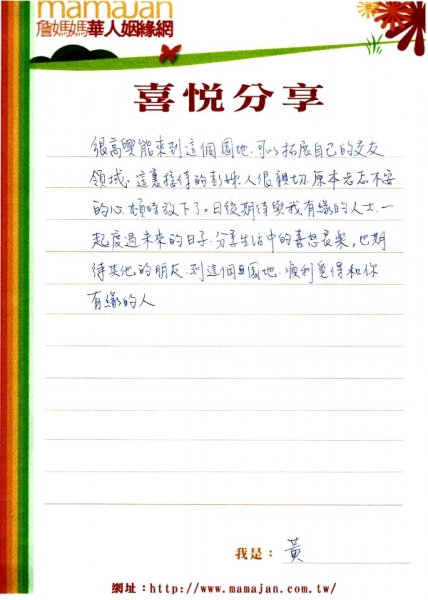 mamajan
詹媽媽華人姻緣網
喜悅分享
很高興能來到這個園地.可以拓展自己的交友
領域.這裏接待的彭姊人很親切.原本忐忑不安
的心.頓時放下了。日後期待與我有緣的人士.一
起度過未來的日子.分享生活中的喜怒哀樂,也期
待其他的朋友.到這個園地.順利覓得和你
有緣的人
我是: 黃
網址:http://www.mamajan.com.tw/